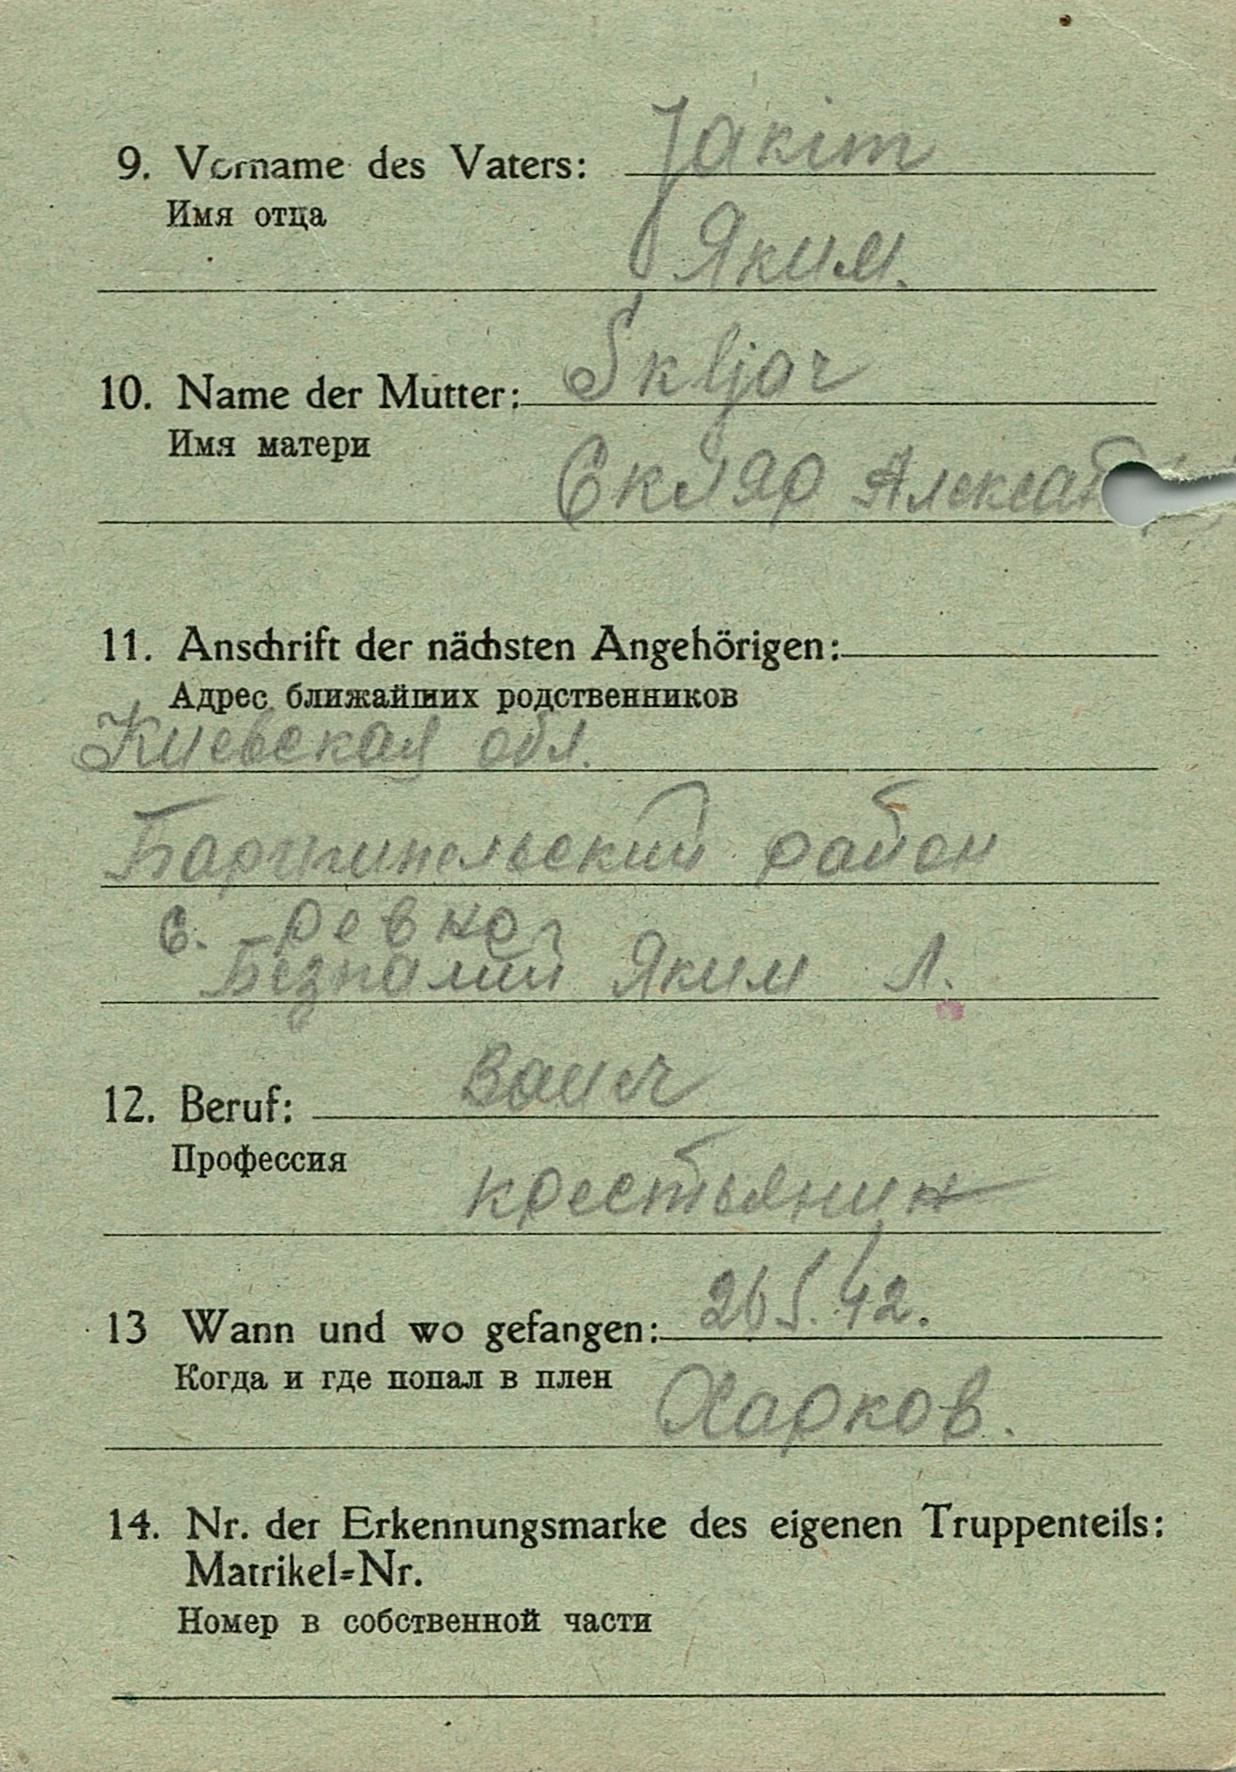 9. Vorname des Vaters: Jakim
Имя отца
Яким.
10. Name der Mutter: Skljar
Имя матери
Скляр Алексан
11. Anschrift der nächsten Angehörigen:
Адрес ближайших родственников
Киевская обл.
район
с. Ревное
Безпалий Яким Л.
12. Beruf:
Профессия
крестьянин
13 Wann und wo gefangen: 26 5. 42.
Когда и где попал в плен
Харков.
14. Nr. der Erkennungsmarke des eigenen Truppenteils:
Matrikel=Nr.
Номер в собственной части